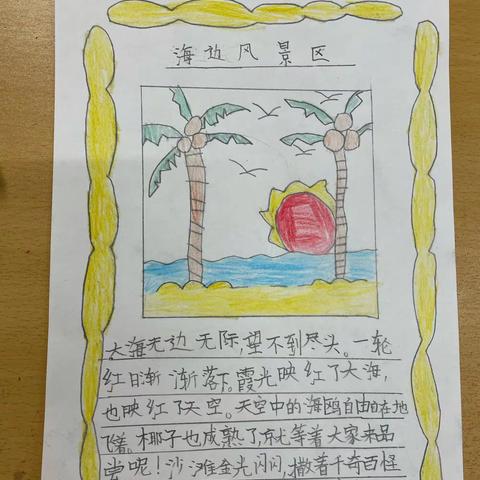 海边风景区
大海无边无际,望不到尽头。一轮
红日渐渐落下。霞光映红了大海,
也映红了天空。天空中的海鸥自由自在地
飞着。椰子也成熟了,就等着大家来品
尝呢!沙滩金光闪闪,撒着千奇百怪